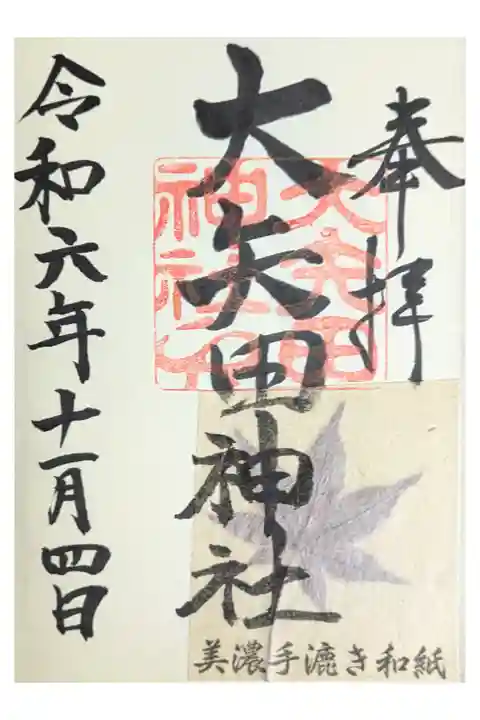 奉拝
大矢田神社
令和六年十一月四日
大矢田
神社
美濃手漉き和紙